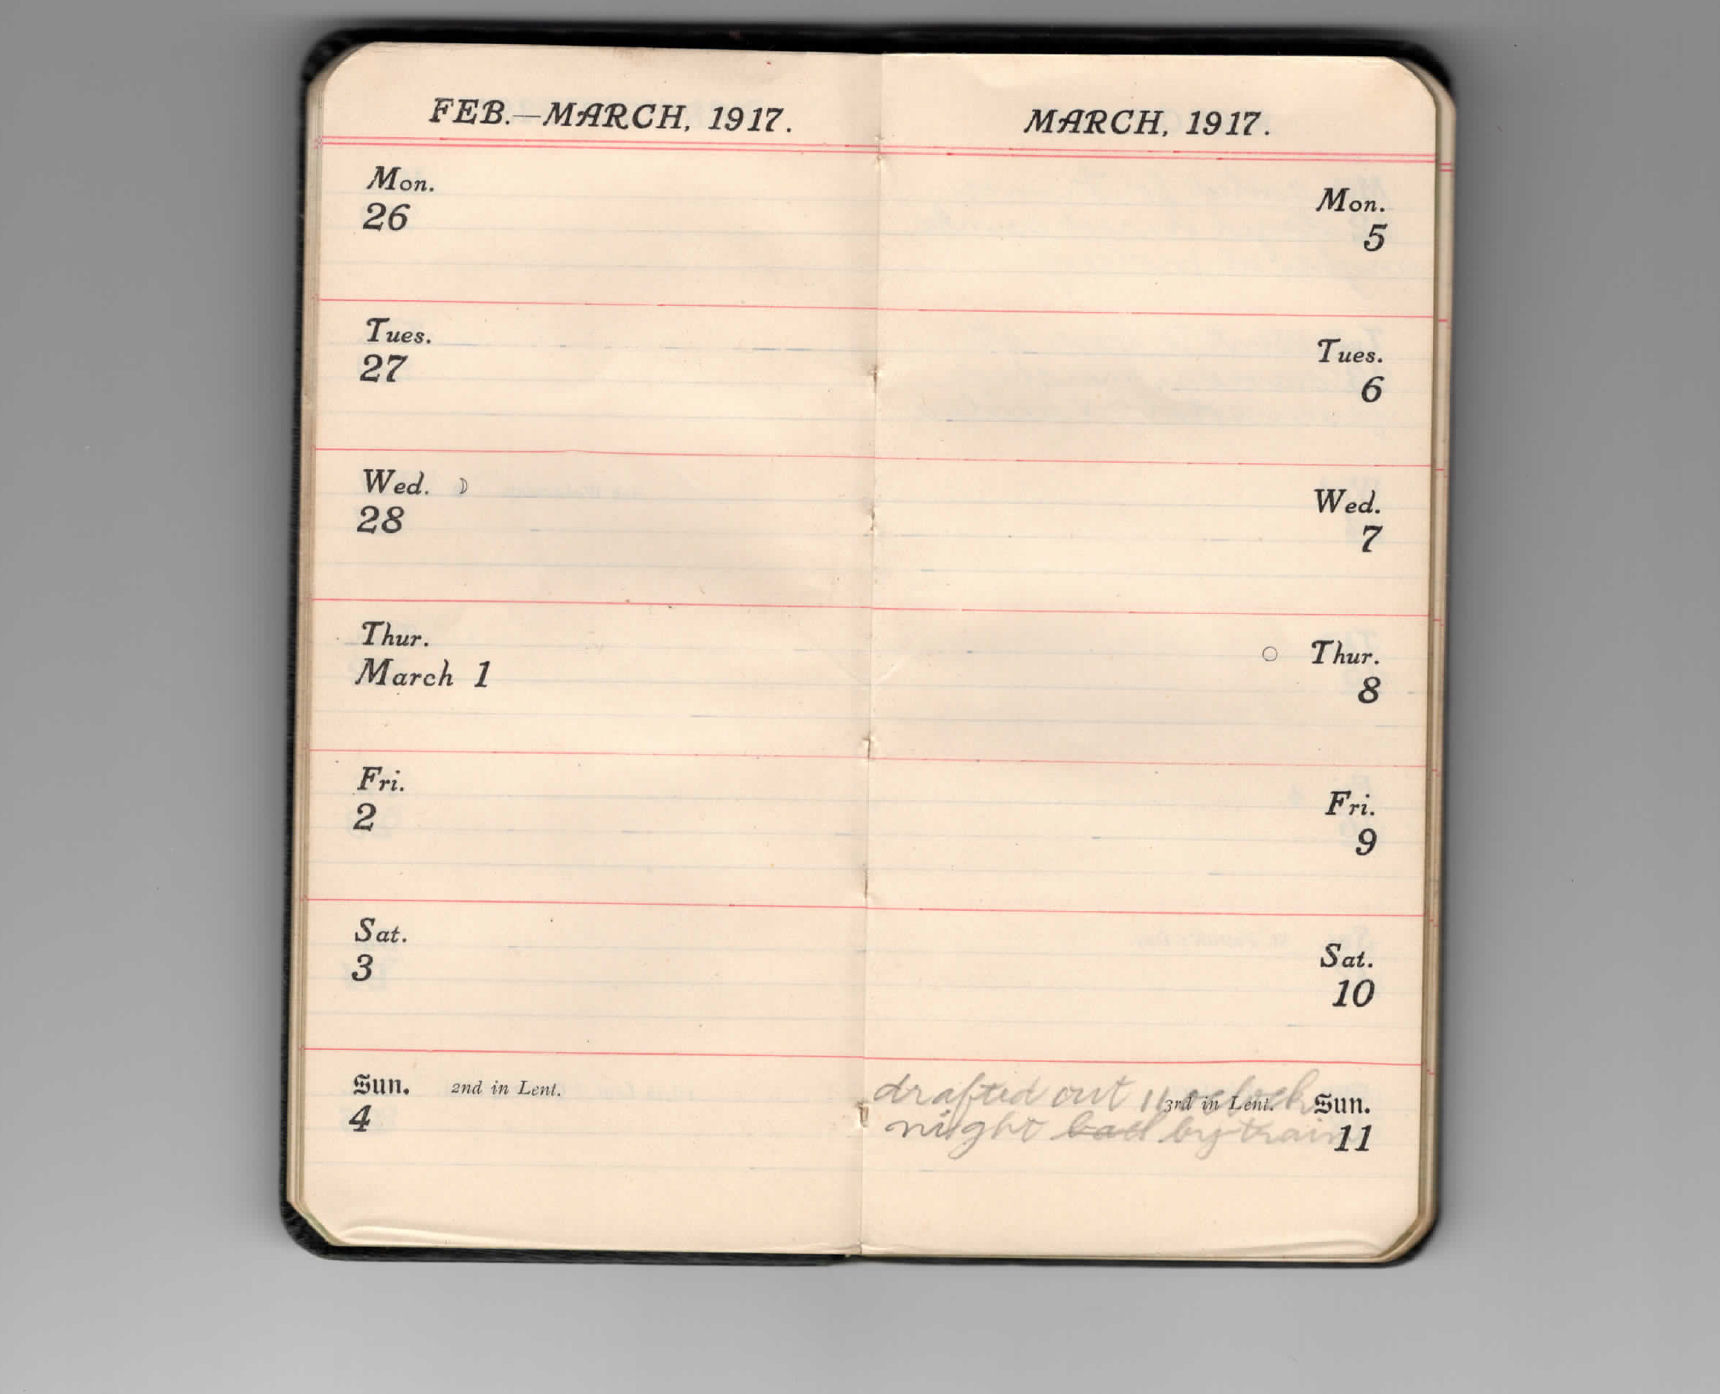 FEB.—MARCH, 1917.
Mon.
26
Tues.
27
Wed. ☽
28
Thur.
March 1
Fri.
2
Sat.
3
Sun. 2nd in Lent.
4
MARCH, 1917.
Mon.
5
Tues.
6
Wed.
7
○ Thur.
8
Fri.
9
Sat.
10
3rd in Lent. Sun.
11
drafted out 11 oclock
night bad by train